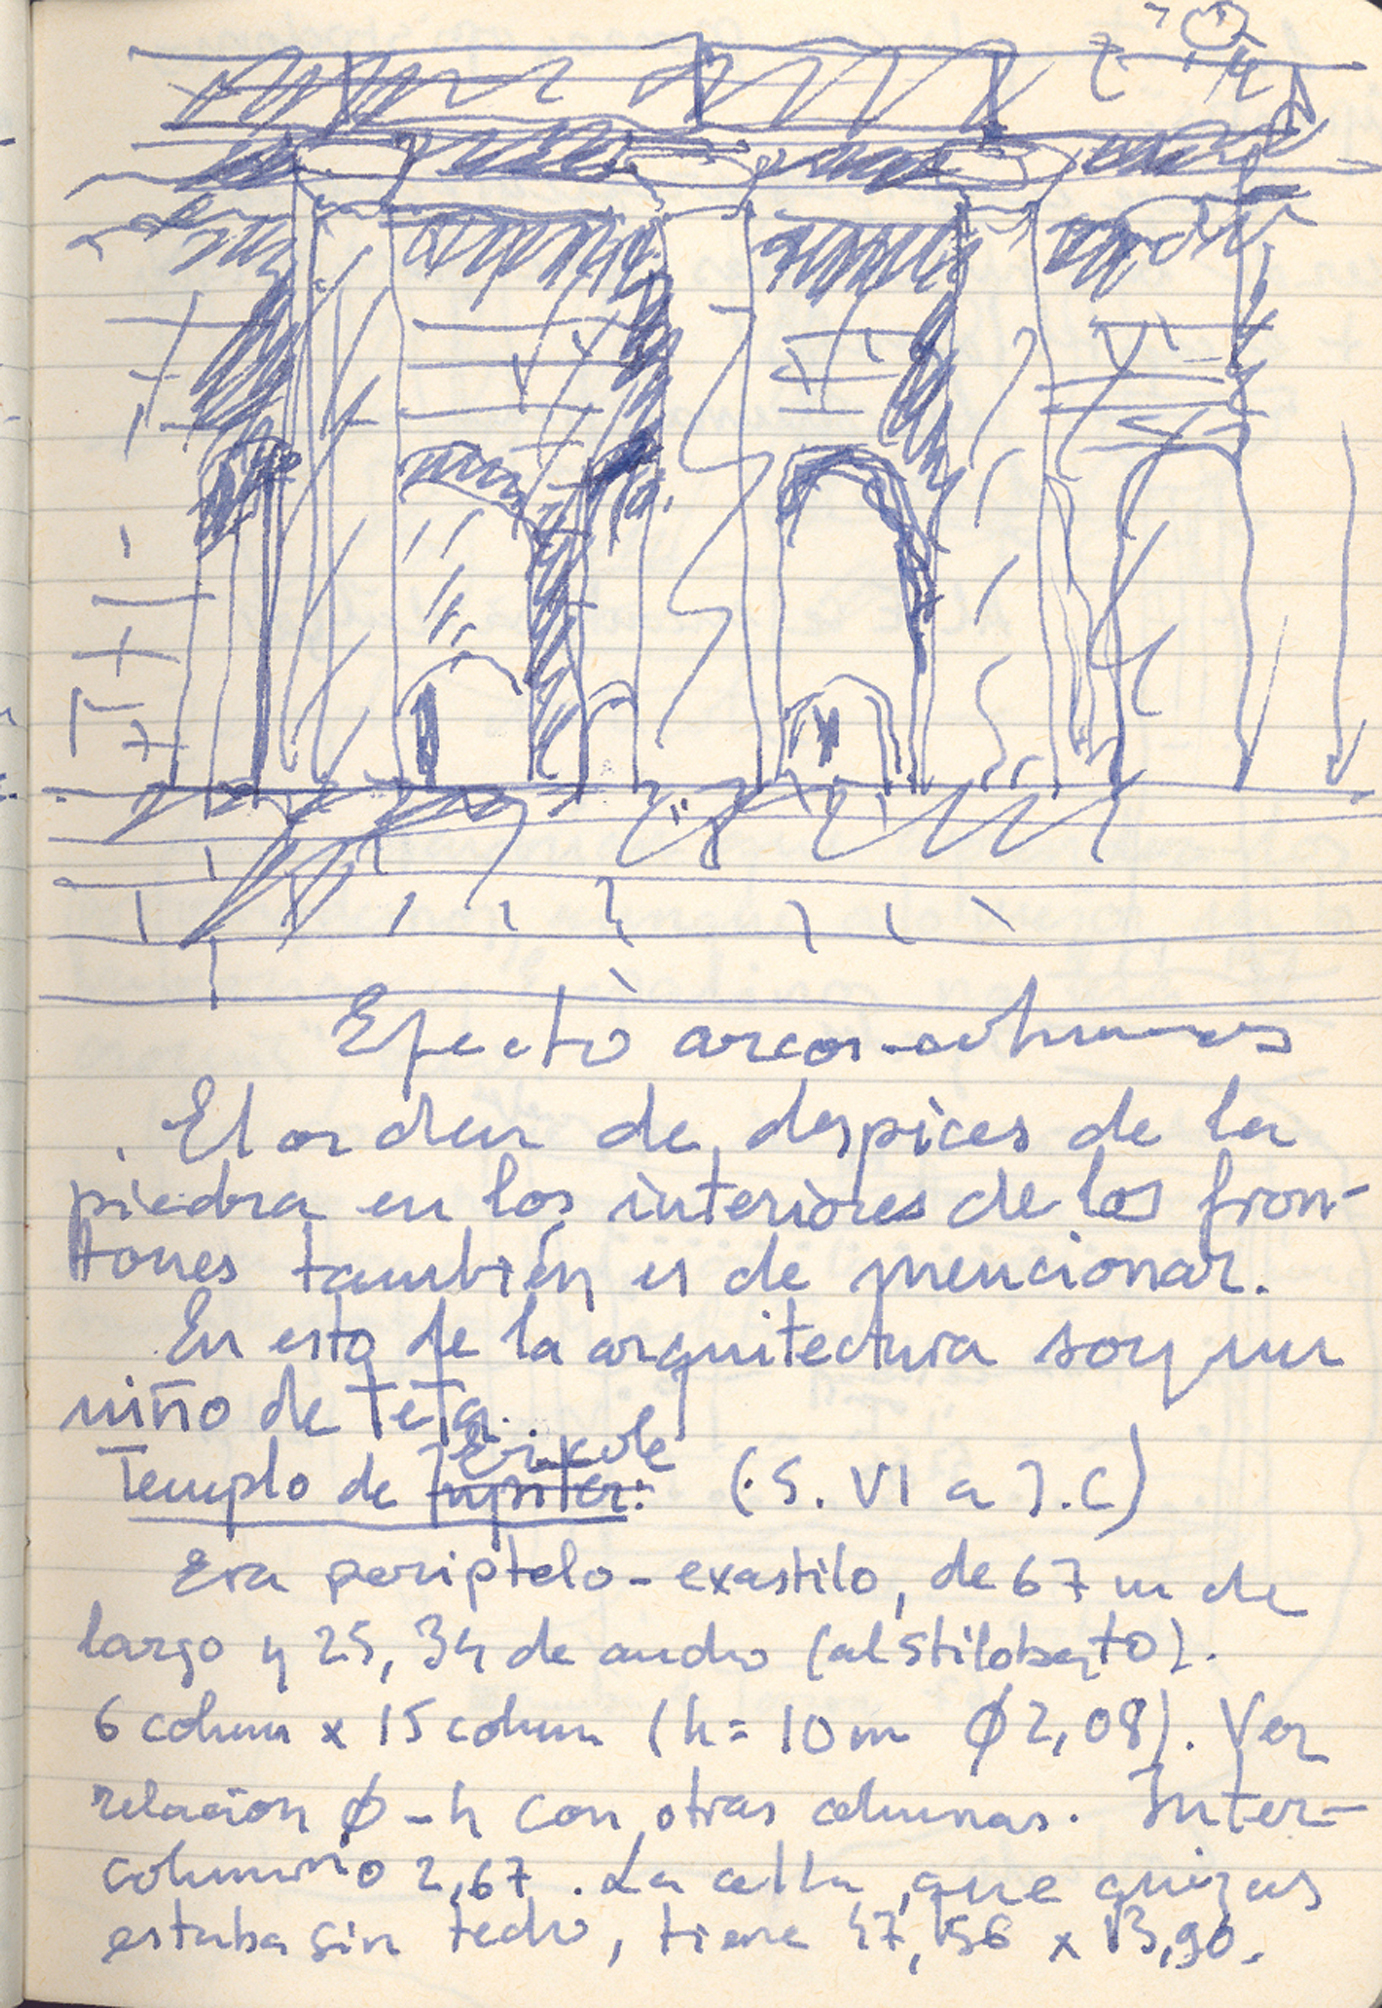 Efecto arcos-columnas
. El orden de despices de la
piedra en los interiores de los fron-
tones también es de mencionar.
En esto de la arquitectura soy un
niño de teta.
Templo de Jupiter: Ercole (S. VI a J.C)
Era periptelo-exastilo, de 67 m de
largo y 25,34 de ancho (al stilobato).
6 colum x 15 colum (h = 10 m Ø 2,08). Ver
relacion Ø - h con otras columnas. Inter-
columnio 2,67. La cella, que quizas
estaba sin techo, tiene 47,56 x 13,90.